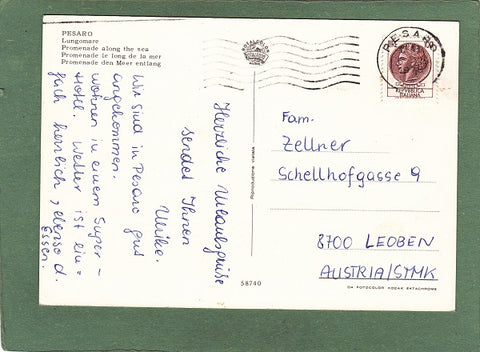 PESARO
Lungomare
Promenade along the sea
Promenade le long de la mer
Promenade den Meer entlang
Wir sind in Pesaro gut
angekommen.
wohnen in einem Super-
Hotel. Wetter ist ein-
fach herrlich, ebenso d.
Essen.
Herzliche Urlaubsgrüße
sendet Ihnen
Ulrike.
PESARO
REPUBBLICA
ITALIANA
Riproduzione vietata
Fam.
Zellner
Schellhofgasse 9
8700 LEOBEN
AUSTRIA/STMK
58740
DA FOTOCOLOR KODAK EKTACHROME